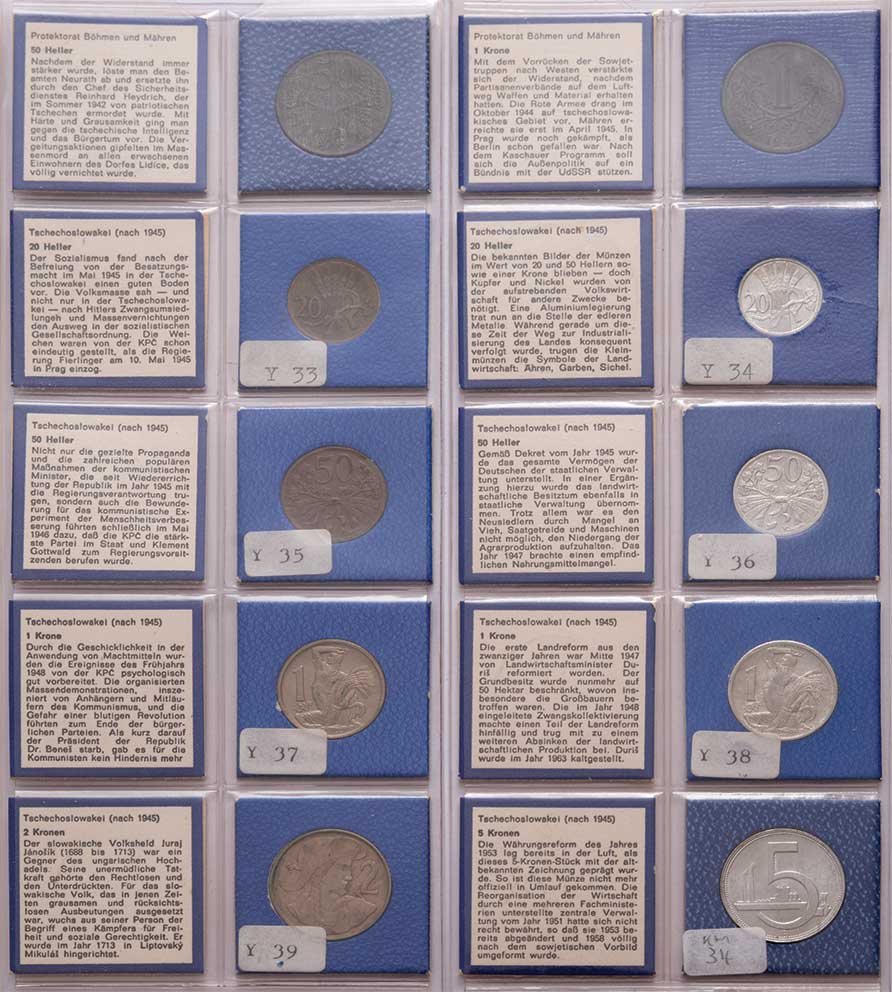 Protektorat Böhmen und Mähren
50 Heller
Nachdem der Widerstand immer
stärker wurde, löste man den Be-
amten Neurath ab und ersetzte ihn
durch den Chef des Sicherheits-
dienstes Reinhard Heydrich, der
im Sommer 1942 von patriotischen
Tschechen ermordet wurde. Mit
Härte und Grausamkeit ging man
gegen die tschechische Intelligenz
und das Bürgertum vor. Die Ver-
geltungsaktionen gipfelten im Mas-
senmord an allen erwachsenen
Einwohnern des Dorfes Lidice, das
völlig vernichtet wurde.
Protektorat Böhmen und Mähren
1 Krone
Mit dem Vorrücken der Sowjet-
truppen nach Westen verstärkte
sich der Widerstand, nachdem
Partisanenverbände auf dem Luft-
weg Waffen und Material erhalten
hatten. Die Rote Armee drang im
Oktober 1944 auf tschechoslowa-
kisches Gebiet vor, Mähren er-
reichte sie erst im April 1945. In
Prag wurde noch gekämpft, als
Berlin schon gefallen war. Nach
dem Kaschauer Programm soll
sich die Außenpolitik auf ein
Bündnis mit der UdSSR stützen.
1
Tschechoslowakei (nach 1945)
20 Heller
Der Sozialismus fand nach der
Befreiung von der Besatzungs-
macht im Mai 1945 in der Tsche-
choslowakei einen guten Boden
vor. Die Volksmasse sah — und
nicht nur in der Tschechoslowa-
kei — nach Hitlers Zwangsumsied-
lungen und Massenvernichtungen
den Ausweg in der sozialistischen
Gesellschaftsordnung. Die Wei-
chen waren von der KPC schon
eindeutig gestellt, als die Regie-
rung Fierlinger am 10. Mai 1945
in Prag einzog.
20
Y 33
Tschechoslowakei (nach 1945)
20 Heller
Die bekannten Bilder der Münzen
im Wert von 20 und 50 Hellern so-
wie einer Krone blieben — doch
Kupfer und Nickel wurden von
der aufstrebenden Volkswirt-
schaft für andere Zwecke be-
nötigt. Eine Aluminiumlegierung
trat nun an die Stelle der edleren
Metalle. Während gerade um die-
se Zeit der Weg zur Industriali-
sierung des Landes konsequent
verfolgt wurde, trugen die Klein-
münzen die Symbole der Land-
wirtschaft: Ähren, Garben, Sichel.
20
Y 34
Tschechoslowakei (nach 1945)
50 Heller
Nicht nur die gezielte Propaganda
und die zahlreichen populären
Maßnahmen der kommunistischen
Minister, die seit Wiedererrich-
tung der Republik im Jahr 1945 mit
die Regierungsverantwortung tru-
gen, sondern auch die Bewunde-
rung für das kommunistische Ex-
periment der Menschheitsverbes-
serung führten schließlich im Mai
1946 dazu, daß die KPC die stärk-
ste Partei im Staat und Klement
Gottwald zum Regierungsvorsit-
zenden berufen wurde.
50
Y 35
Tschechoslowakei (nach 1945)
50 Heller
Gemäß Dekret vom Jahr 1945 wur-
de das gesamte Vermögen der
Deutschen der staatlichen Verwal-
tung unterstellt. In einer Ergän-
zung hierzu wurde das landwirt-
schaftliche Besitztum ebenfalls in
staatliche Verwaltung übernom-
men. Trotz allem war es den
Neusiedlern durch Mangel an
Vieh, Saatgetreide und Maschinen
nicht möglich, den Niedergang der
Agrarproduktion aufzuhalten. Das
Jahr 1947 brachte einen empfind-
lichen Nahrungsmittelmangel.
50
Y 36
Tschechoslowakei (nach 1945)
1 Krone
Durch die Geschicklichkeit in der
Anwendung von Machtmitteln wur-
den die Ereignisse des Frühjahrs
1948 von der KPC psychologisch
gut vorbereitet. Die organisierten
Massendemonstrationen, insze-
niert von Anhängern und Mitläu-
fern des Kommunismus, und die
Gefahr einer blutigen Revolution
führten zum Ende der bürger-
lichen Parteien. Als kurz darauf
der Präsident der Republik
Dr. Beneš starb, gab es für die
Kommunisten kein Hindernis mehr
1
Y 37
Tschechoslowakei (nach 1945)
1 Krone
Die erste Landreform aus den
zwanziger Jahren war Mitte 1947
von Landwirtschaftsminister Du-
riš reformiert worden. Der
Grundbesitz wurde nunmehr auf
50 Hektar beschränkt, wovon ins-
besondere die Großbauern be-
troffen waren. Die im Jahr 1948
eingeleitete Zwangskollektivierung
machte einen Teil der Landreform
hinfällig und trug mit zu einem
weiteren Absinken der landwirt-
schaftlichen Produktion bei. Duriš
wurde im Jahr 1963 kaltgestellt.
1
Y 38
Tschechoslowakei (nach 1945)
2 Kronen
Der slowakische Volksheld Juraj
Jánošík (1688 bis 1713) war ein
Gegner des ungarischen Hoch-
adels. Seine unermüdliche Tat-
kraft gehörte den Rechtlosen und
den Unterdrückten. Für das slo-
wakische Volk, das in jenen Zei-
ten grausamen und rücksichts-
losen Ausbeutungen ausgesetzt
war, wuchs aus seiner Person der
Begriff eines Kämpfers für Frei-
heit und soziale Gerechtigkeit. Er
wurde im Jahr 1713 in Liptovský
Mikuláš hingerichtet.
2
Y 39
Tschechoslowakei (nach 1945)
5 Kronen
Die Währungsreform des Jahres
1953 lag bereits in der Luft, als
dieses 5-Kronen-Stück mit der alt-
bekannten Zeichnung geprägt wur-
de. So ist diese Münze nicht mehr
offiziell in Umlauf gekommen. Die
Reorganisation der Wirtschaft
durch eine mehreren Fachministe-
rien unterstellte zentrale Verwal-
tung vom Jahr 1951 hatte sich nicht
recht bewährt, so daß sie 1953 be-
reits abgeändert und 1958 völlig
nach dem sowjetischen Vorbild
umgeformt wurde.
5
KM
34